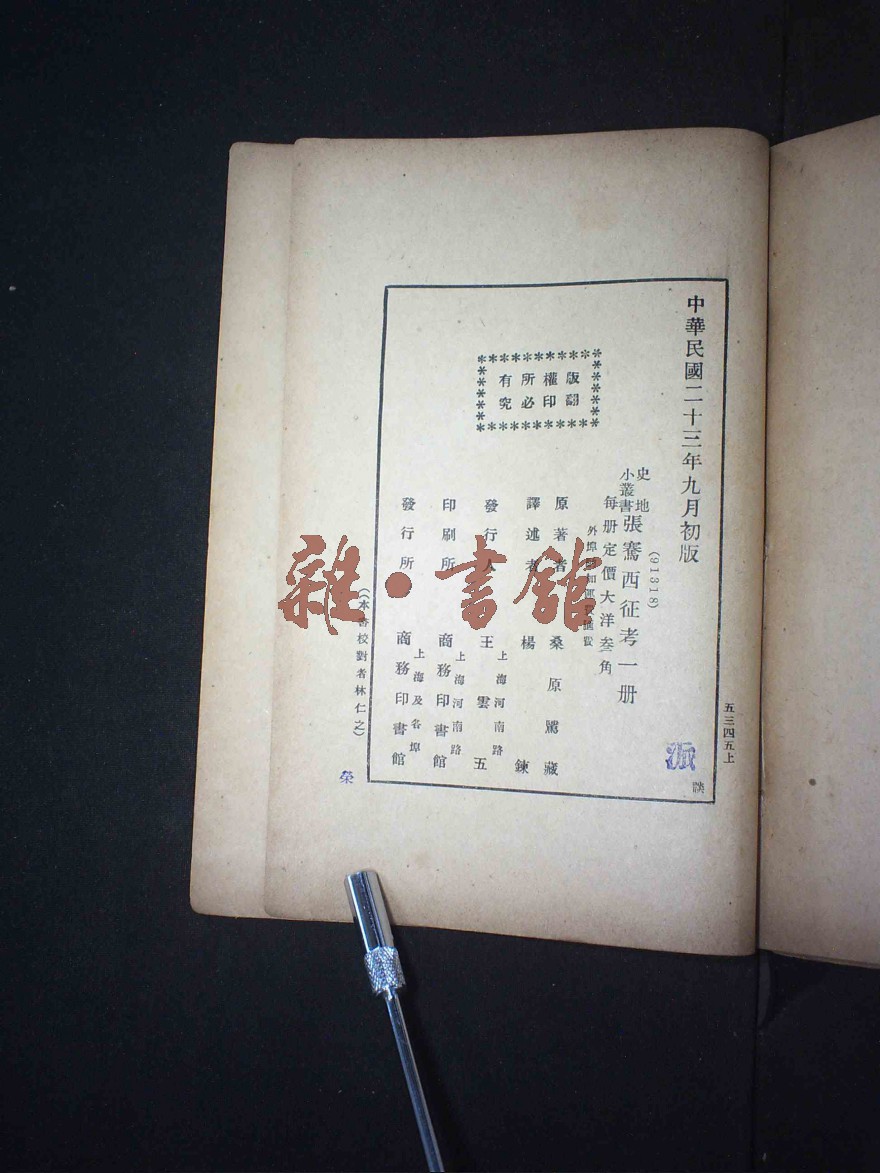 中華民國二十三年九月初版
版權所有
翻印必究
(91318)
史地
小叢書
張騫西征考一册
每册定價大洋叁角
外埠
原著者 桑原騭藏
譯述者 楊鍊
發行人 王雲五
上海河南路
印刷所 商務印書館
上海河南路
發行所 商務印書館
上海及各埠
(本書校對者林仁之)
五三四五上
派
榮
雜·書館